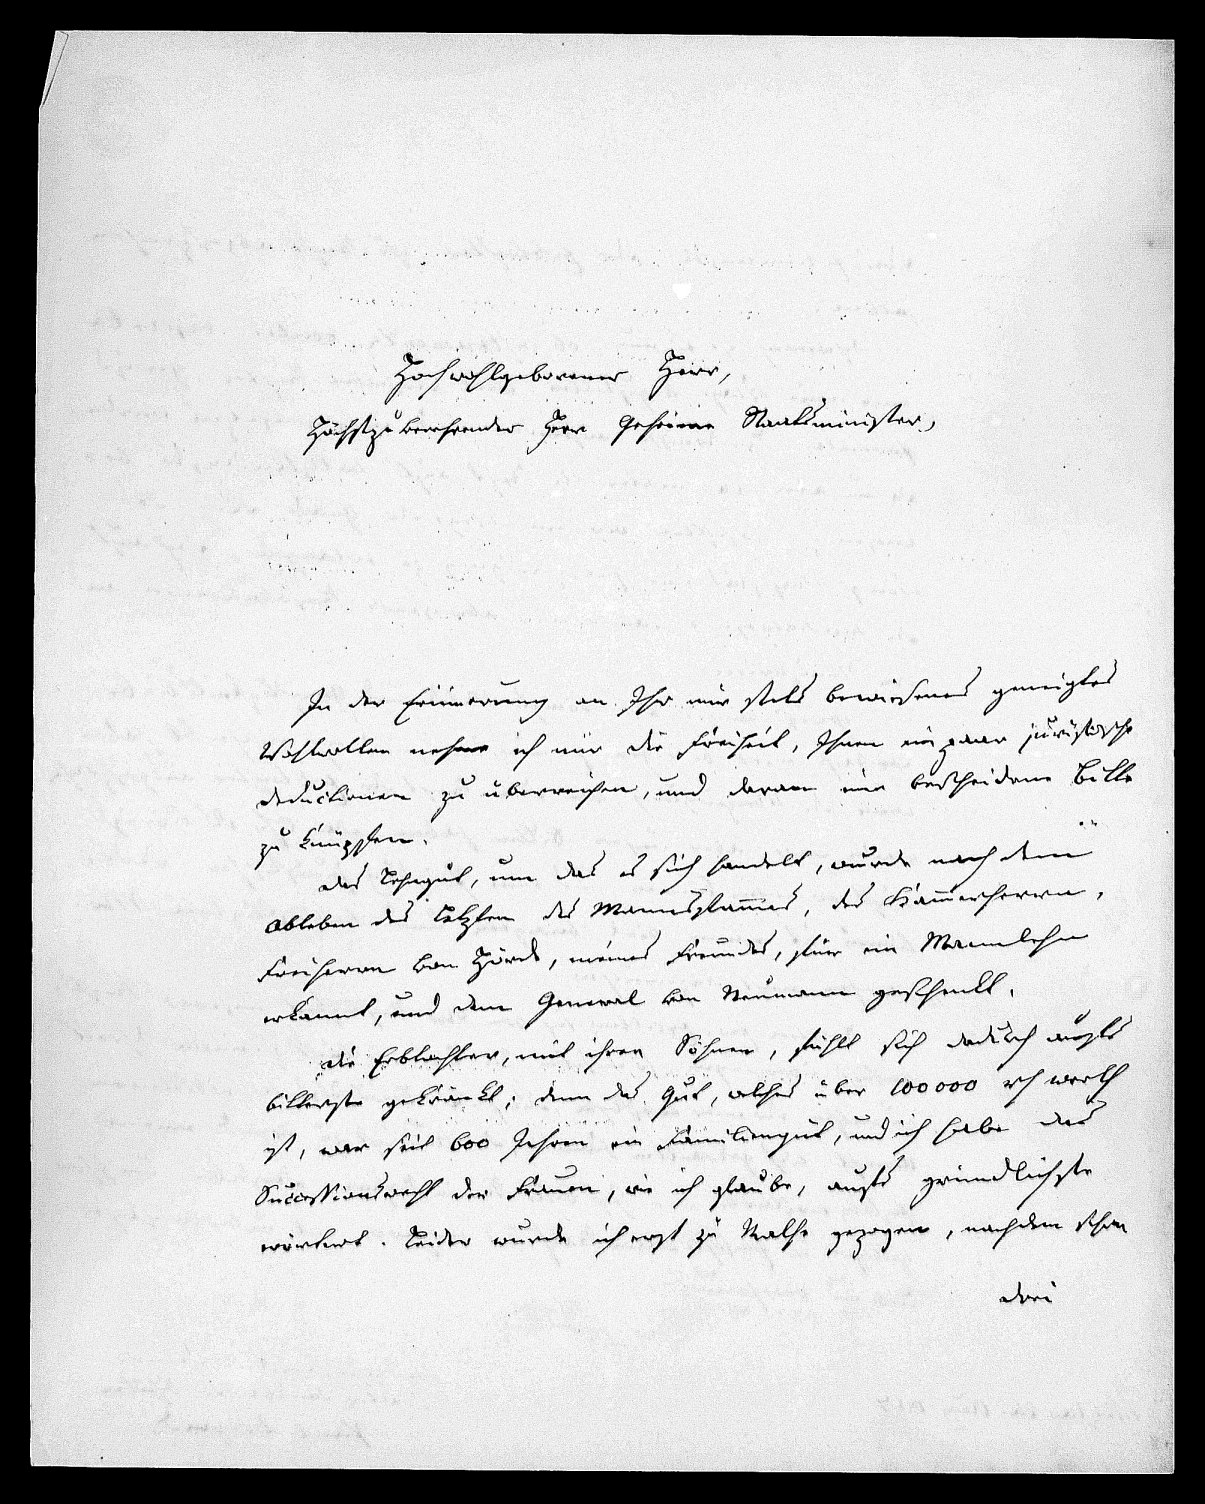 Hochwohlgeborener Herr,
Höchstzuverehrender Herr Geheime Staatsminister,
In der Erinnerung an Ihr mir stets bewiesenes geneigtes
Wohlwollen nehme ich mir die Freiheit, Ihnen ein paar juristische
Deductionen zu überreichen, und daran eine bescheidene Bitte
zu knüpfen.
Das Lehngut, um das es sich handelt, wurde nach dem
Ableben des Letzten des Mannsstammes, des Kammerherrn,
Freiherrn von Hörde, meines Freundes, für ein Mannlehn
erkannt, und dem General von Neumann geschenkt.
Die Erbtochter, mit ihren Söhnen, fühlt sich dadurch aufs
bitterste gekränkt; denn das Gut, welches über 100000 rh werth
ist, war seit 600 Jahren ein Familiengut, und ich habe das
Successionsrecht der Frauen, wie ich glaube, aufs gründlichste
erörtert. Leider wurde ich erst zu Rathe gezogen, nachdem schon
drei